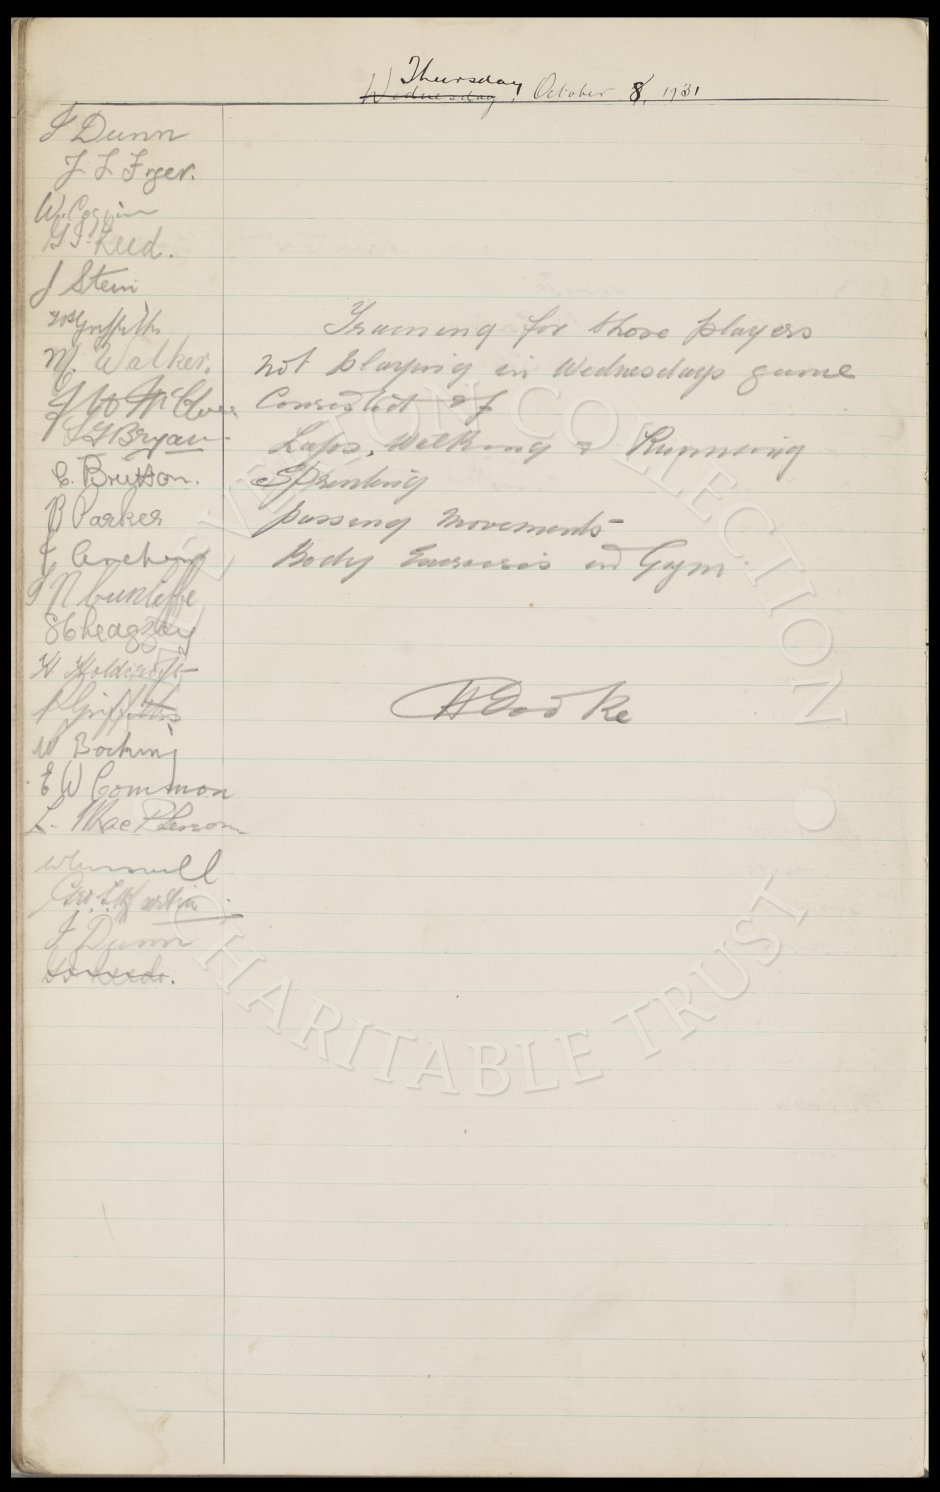 Thursday
Wednesday, October 8, 1931
J Dunn
J. L Fryer.
W. Coggin
G. F. Reed.
J Stein
WH Griffiths
M. Walker.
L G Bryan
C. Britton.
B Parker
J Archer
J N Cunliffe
H. Holdcroft
P Griffiths
W Bocking
E W Common
L. MacPherson
Geo. L. Martin
J Dunn
Training for those players
not playing in Wednesdays game
Consisted of
Laps, Walking & Running
Sprinting
passing movements
Body Exercises in Gym.
H Cooke
EVERTON COLLECTION
CHARITABLE TRUST